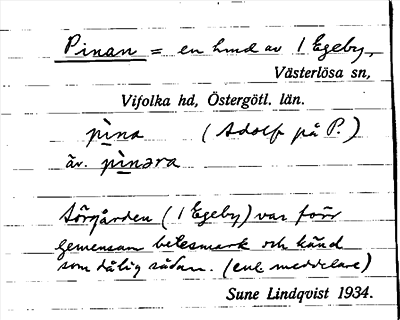 Pinan = en hmd av 1 Egeby,
Västerlösa sn,
Vifolka hd, Östergötl. län.
pìna (Adolf på P.)
äv. pìnəra
Sörgården (1 Egeby) var förr
gemensam betesmark och känd
som dålig sådan. (enl meddelare)
Sune Lindqvist 1934.